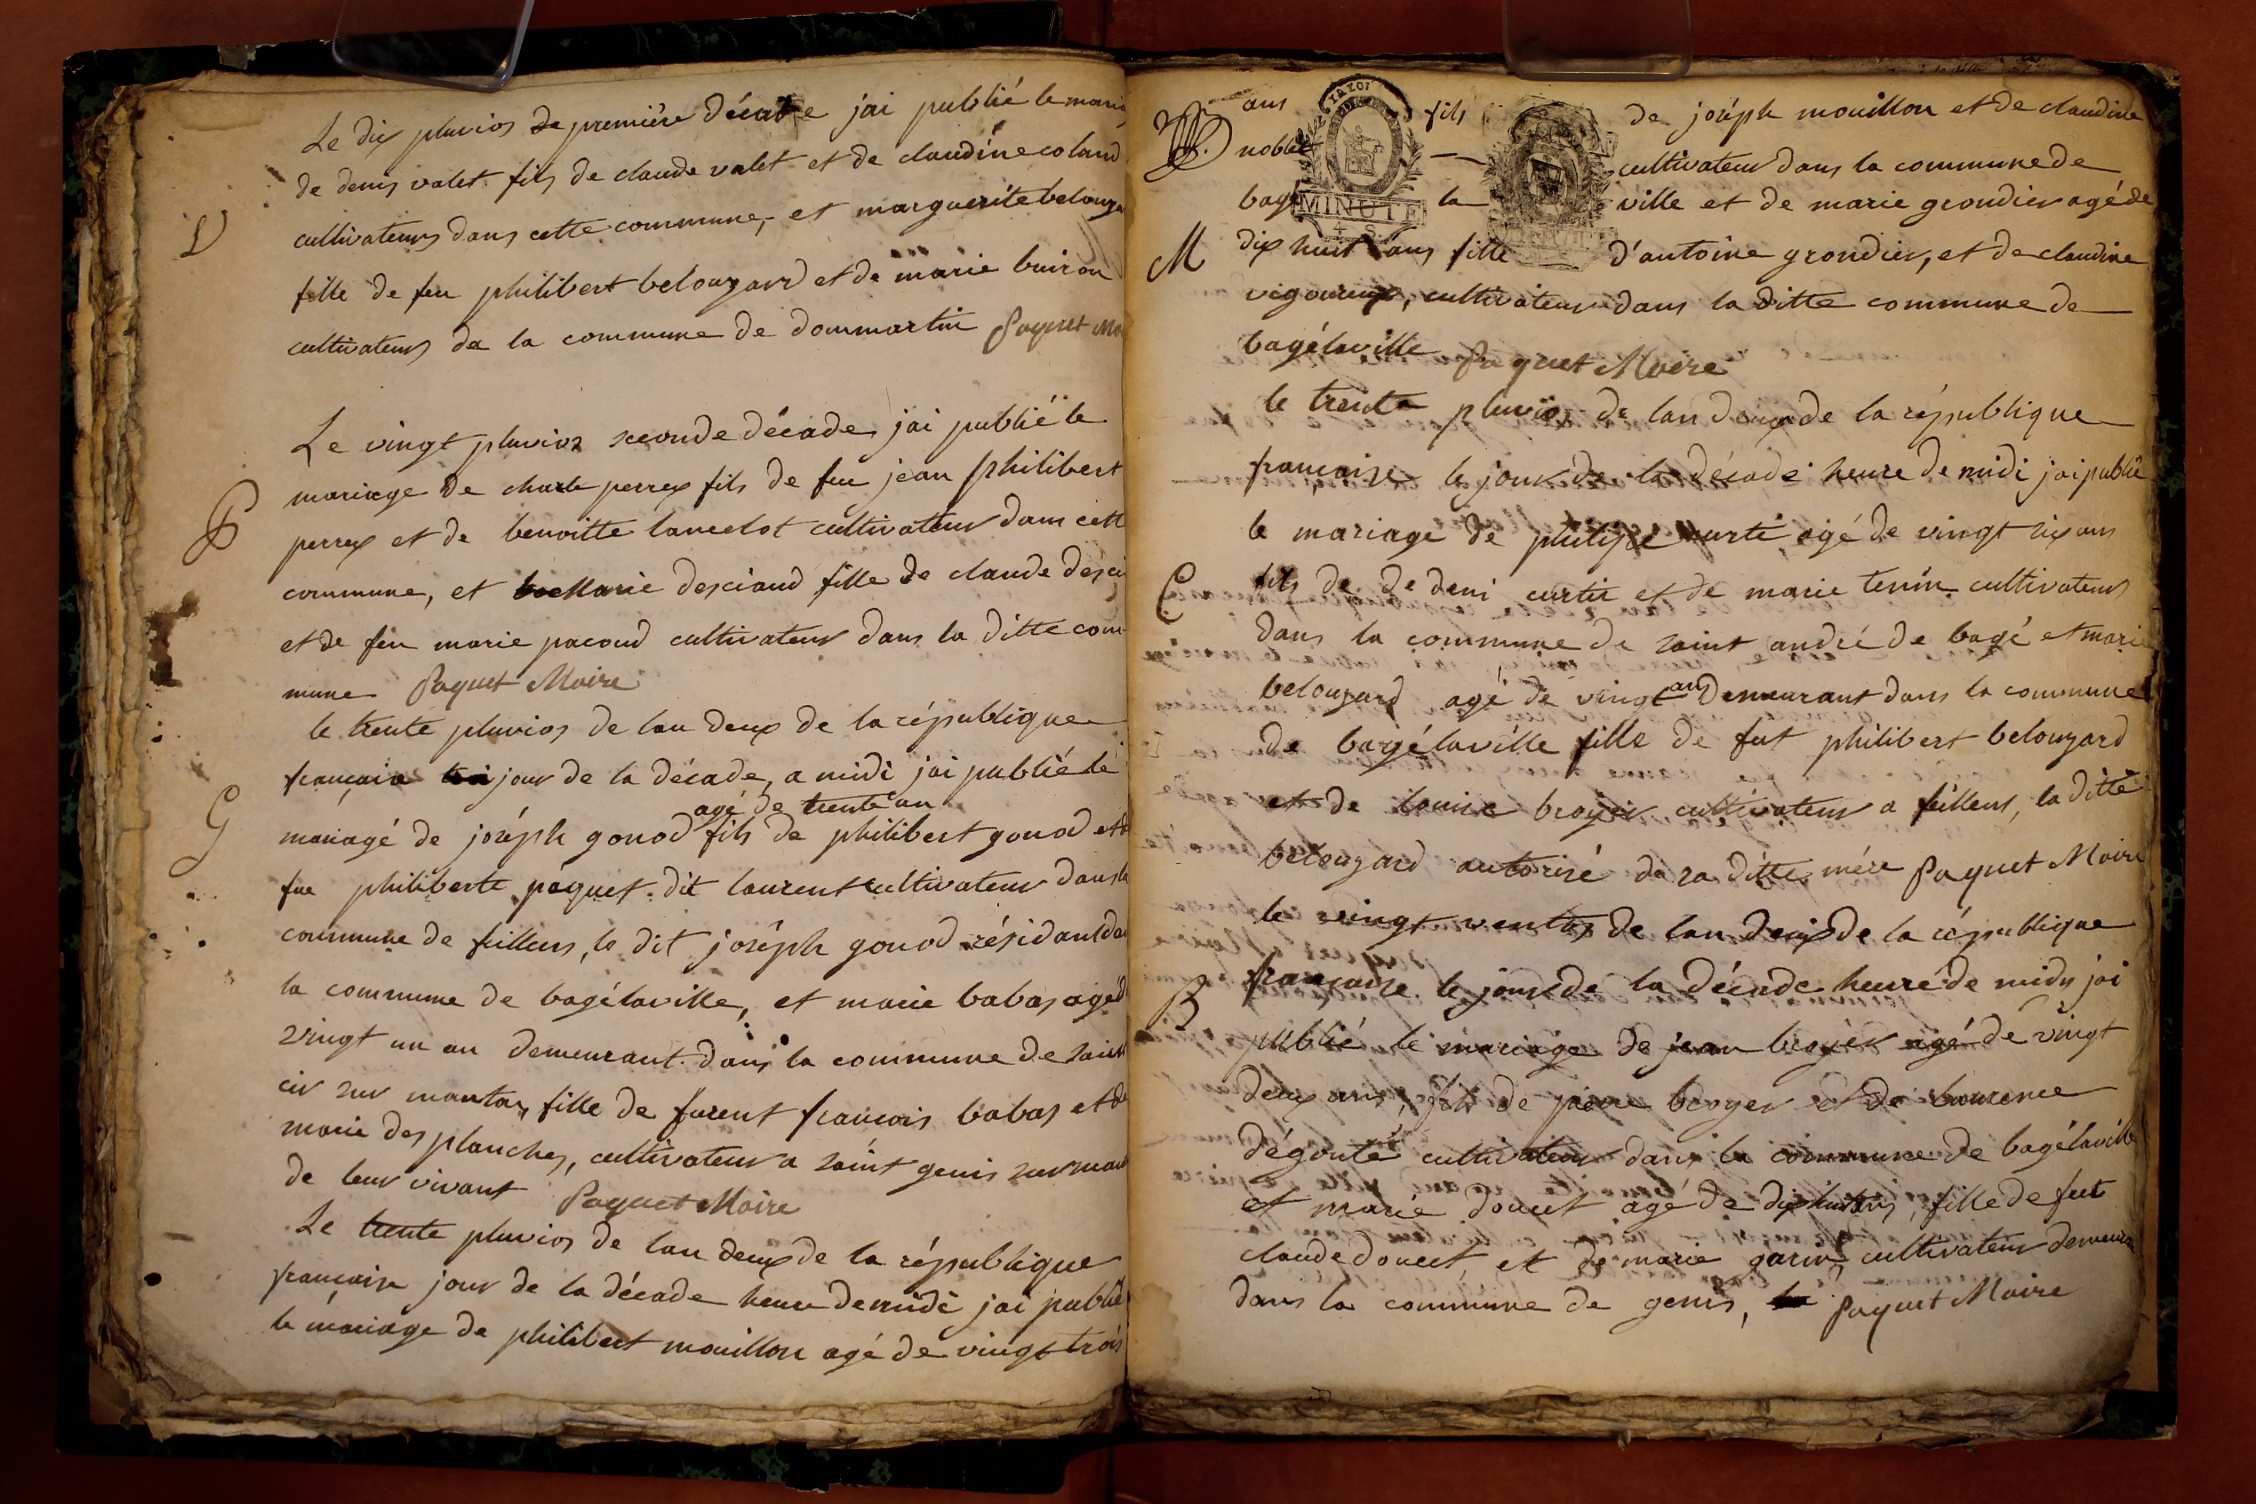 Le dix pluvios de première décade jai publié le mari
de denis valet fils de claude valet et de claudine coland
V
cultivateurs dans cette commune, et marguerite belouza
fille de feu philibert belouzard et de marie buiron
cultivateurs de la commune de dommartin paquet Mai
Le vingt pluvios seconde décade jai publié le
mariage de charle perrex fils de feu jean philibert
P
perrex et de benoitte lancelot cultivateur dans cett
commune, et Marie desciaud fille de claude desci
et de feu marie pacoud cultivateur dans la ditte com
mune paquet Maire
le trente pluvios de lan deux de la république
françaisse jour de la décade, a midi jai publié le
agé de trente an
G
mariagé de joséph gonod fils de philibert gonod et d
fue philiberte paquet dit laurent cultivateur dans la
commune de feillens, le dit joséph gonod résidant da
la commune de bagélaville, et marie babas agé d
vingt un an demeurant dans la commune de saint
cir sur manton, fille de furent francois babas et de
marie des planches, cultivateur a saint genis sur man
de leur vivant paquet Maire
Le trente pluvios de lan deux de la république
française jour de la décade heure de midi jai publié
le mariage de philibert mouillon agé de vingt trois
ans fils de joséph mouillon et de claudine
noblet cultivateur dans la commune de
bagé la ville et de marie grondier agé de
MINUTE
M
dix huit ans fille d'antoine grondier, et de claudine
vigoureux, cultivateur dans la ditte commune de
bagélaville paquet Maire
le trente pluvios de lan deux de la république
française le jour de la décade heure de midi jai publié
le mariage de philipe curti agé de vingt six ans
C
fils de de deni curtit et de marie tenin cultivateurs
dans la commune de saint andré de bagé et marie
belouzard agé de vingt an demeurant dans la commune
de bagélaville fille de fut philibert belouzard
et de louise broyer cultivateur a feillens, la ditte
belouzard autorisé de sa ditte mére paquet Maire
le vingt ventos de lan deux de la république
française le jour de la décade heure de midy jai
B
publié le mariage de jean broyer agé de vingt
deux ans, fils de pierre broyer et de laurence
dégouté cultivateur dans la commune de bagélaville
et marie doucet agé de dix huit ans, fille de feut
claude doucet et de marie garin, cultivateur demeura
dans la commune de genis, paquet Maire